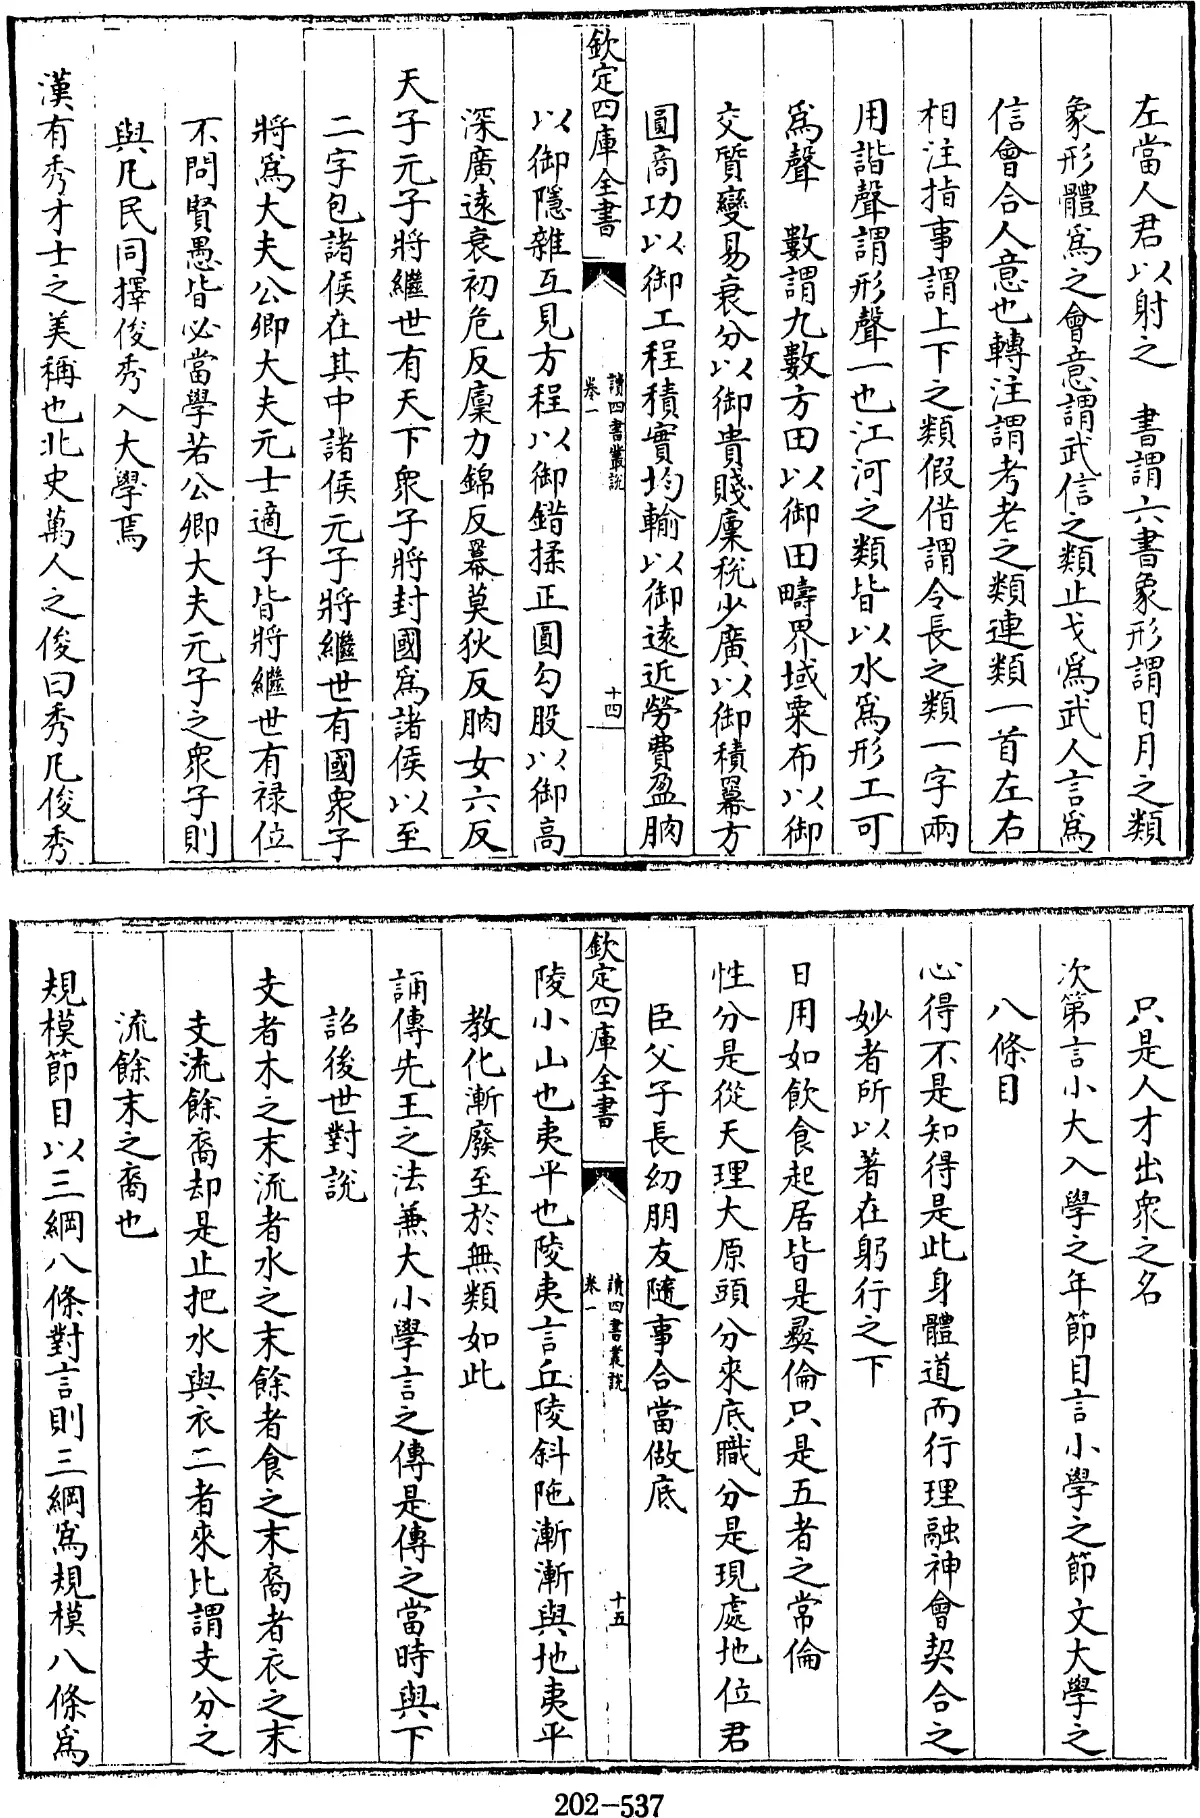 左當人君以射之　書謂六書象形謂日月之類
象形體爲之會意謂武信之類止戈爲武人言爲
信會合人意也轉注謂考老之類連類一首左右
相注指事謂上下之類假借謂令長之類一字兩
用諧聲謂形聲一也江河之類皆以水爲形工可
爲聲　數謂九數方田以御田疇界域粟布以御
交質變易衰分以御貴賤廩稅少廣以御積羃方
圓商功以御工程積實均輸以御遠近勞費盈朒
欽定四庫全書
讀四書叢說
卷一
十四
以御隱雜互見方程以御錯揉正圓勾股以御高
深廣遠衰初危反廩力錦反羃莫狄反朒女六反
天子元子將繼世有天下衆子將封國爲諸侯以至
二字包諸侯在其中諸侯元子將繼世有國衆子
將爲大夫公卿大夫元士適子皆將繼世有禄位
不問賢愚皆必當學若公卿大夫元子之衆子則
與凡民同擇俊秀入大學焉
漢有秀才士之美稱也北史萬人之俊曰秀凡俊秀
只是人才出衆之名
次第言小大入學之年節目言小學之節文大學之
八條目
心得不是知得是此身體道而行理融神會契合之
妙者所以著在躬行之下
日用如飲食起居皆是彛倫只是五者之常倫
性分是從天理大原頭分來底職分是現處地位君
臣父子長幼朋友隨事合當做底
欽定四庫全書
讀四書叢說
卷一
十五
陵小山也夷平也陵夷言丘陵斜陁漸漸與地夷平
教化漸廢至於無類如此
誦傳先王之法兼大小學言之傳是傳之當時與下
詔後世對說
支者木之末流者水之末餘者食之末裔者衣之末
支流餘裔却是止把水與衣二者來比謂支分之
流餘末之裔也
規模節目以三綱八條對言則三綱爲規模八條爲
202-537